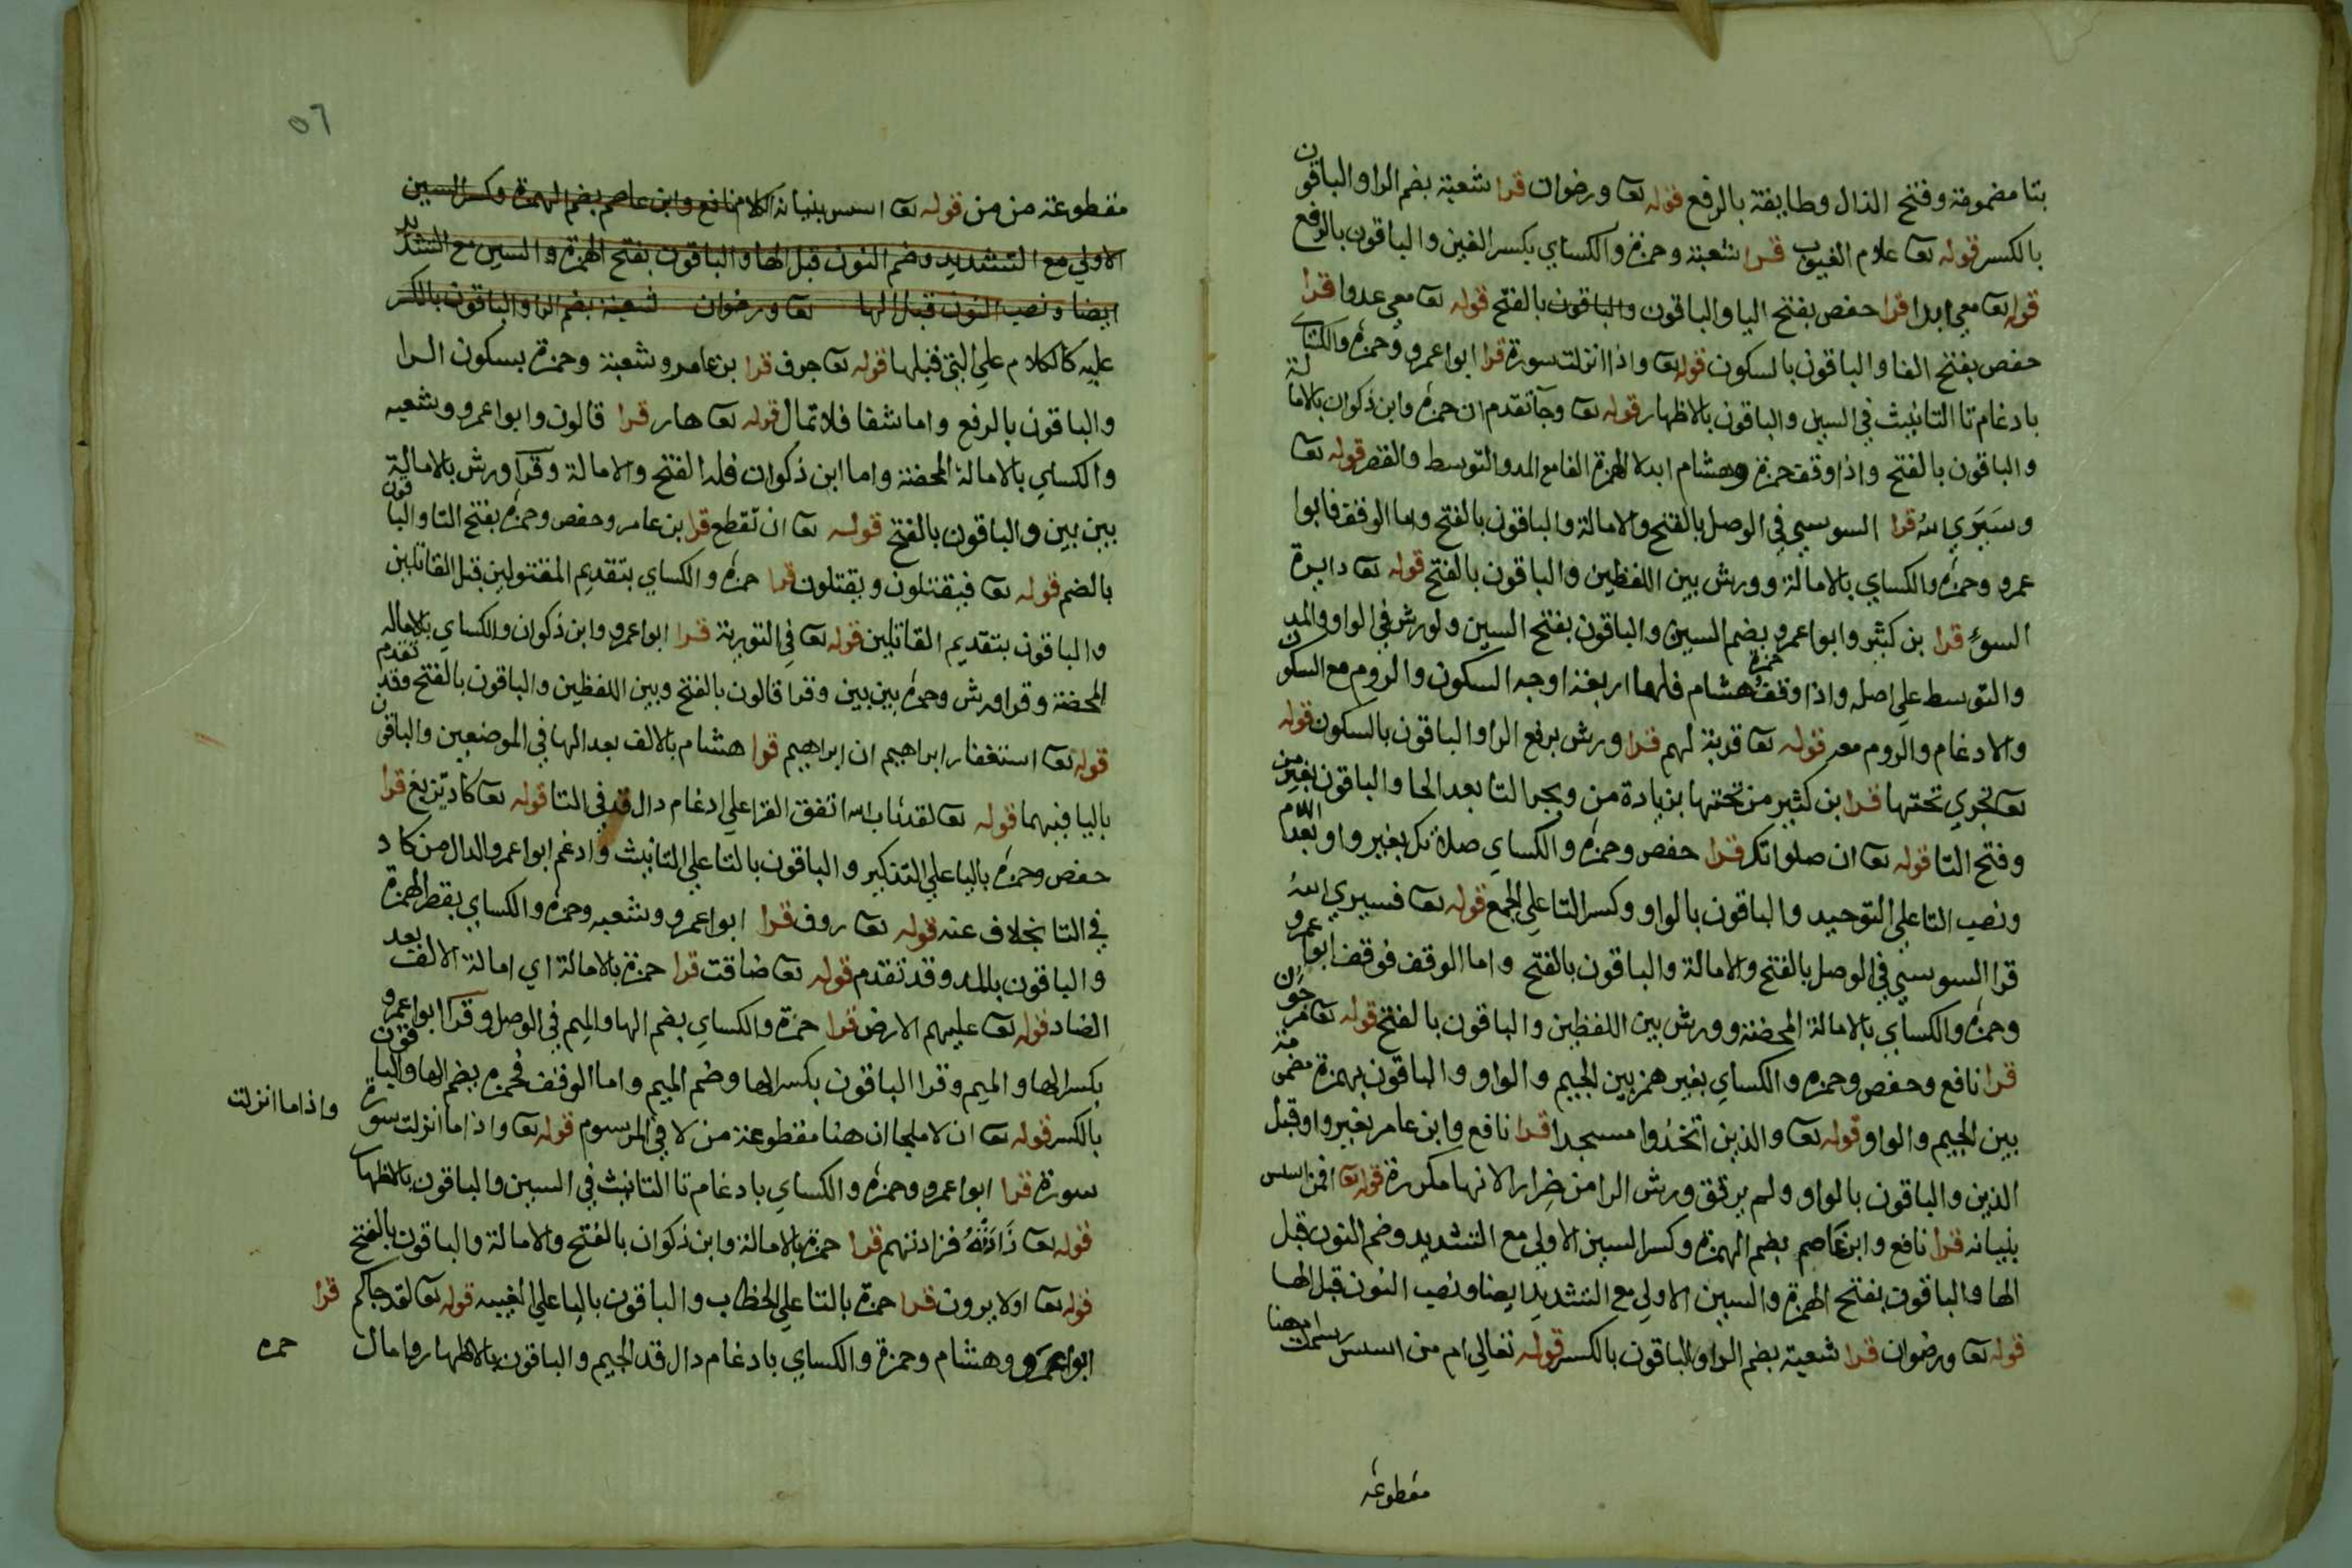 بتا مضمومة وفتح الذال وطايفة بالرفع قوله تعا ورضوان قرا شعبة بضم الرا والباقون
بالكسر قوله تعا علام الغيوب قرا شعبة وحمزة والكساي بكسر الغين والباقون بالرفع
قوله تعا معي ابدا قرا حفص بفتح اليا والباقون والباقون بالفتح قوله تعا معي عدوا قرا
حفص بفتح الفا والباقون بالسكون قوله تعا واذا انزلت سورة قرا ابوا عمرو وحمزة والكساي
بادغام تا التانيث في السين والباقون بالاظهار قوله تعا وجا تقدم ان حمزة وابن ذكوان بالامالة
والباقون بالفتح واذا وقف حمزة وهشام ابدلا الهمزة الفا مع المد والتوسط والقصر قوله تعا
وسيري الله قرا السوسي في الوصل بالفتح والامالة والباقون بالفتح واما الوقف فابوا
عمرو وحمزة والكساي بالامالة وورش بين اللفظين والباقون بالفتح قوله تعا دايرة
السوء قرا بن كثير وابوا عمرو بضم السين والباقون بفتح السين ولورش في الواو والمد
والتوسط علي اصله واذا وقف حمزة وهشام فلهما اربعة اوجه السكون والروم مع السكون
والادغام والروم معه قوله تعا قربة لهم قرا ورش برفع الرا والباقون بالسكون قوله
تعا تجري تحتها قرا ابن كثير من تحتها بزيادة من وبجر التا بعد الحا والباقون بغير من
وفتح التا قوله تعا ان صلواتك قرا حفص وحمزة والكساي صلاتك بغير واو بعد اللام
ونصب التا علي التوحيد والباقون بالواو وكسر التا علي الجمع قوله تعا فسيري الله
قرا السوسي في الوصل بالفتح والامالة والباقون بالفتح واما الوقف فوقف ابوا عمرو
وحمزة والكساي بالامالة المحضة وورش بين اللفظين والباقون بالفتح قوله تعا مرجون
قرا نافع وحفص وحمزة والكساي بغير همز بين الجيم والواو والباقون بهمزة مضمومة
بين الجيم والواو قوله تعا والذين اتخذوا مسجدا قرا نافع وابن عامر بغير واو قبل
الذين والباقون بالواو ولم يرقق ورش الرا من ضرارا لانها مكررة قوله تعا افمن اسس
بنيانه قرا نافع وابن عاصم بضم الهمزة وكسر السين الاولي مع التشديد وضم النون قبل
الها والباقون بفتح الهمزة والسين الاولي مع التشديد ايضا ونصب النون قبل الها
قوله تعا ورضوان قرا شعبة بضم الرا والباقون بالكسر قوله تعالي ام من اسس رسمت هنا
مقطوعة
٥٦
مقطوعة من من قوله تعا اسس بنيانه الكلام نافع وابن عاصم بضم الهمزة وكسر السين
الاولي مع التشديد وضم النون قبل الها والباقون بفتح الهمزة والسين مع التشديد
ايضا ونصب النون قبل الها تعا ورضوان شعبة بضم الرا والباقون بالكسر
عليه كالكلام علي التي قبلها قوله تعا جرف قرا بن عامر وشعبة وحمزة بسكون الرا
والباقون بالرفع واما شفا فلا تمال قوله تعا هار قرا قالون وابوا عمرو وشعبه
والكساي بالامالة المحضة واما ابن ذكوان فله الفتح والامالة وقرا ورش بالامالة
بين بين والباقون بالفتح قوله تعا ان تقطع قرا بن عامر وحفص وحمزة بفتح التا والباقون
بالضم قوله تعا فيقتلون ويقتلون قرا حمزة والكساي بتقديم المقتولين قبل القاتلين
والباقون بتقديم القاتلين قوله تعا في التورية قرا ابوا عمرو وابن ذكوان والكساي بالاماله
المحضة وقرا ورش وحمزة بين بين وقرا قالون بالفتح وبين اللفظين والباقون بالفتح وقد تقدم
قوله تعا استغفار ابراهيم ان ابراهيم قرا هشام بالالف بعد الها في الموضعين والباقون
باليا فيهما قوله تعا لقد تاب الله اتفق القرا علي ادغام دال قد في التا قوله تعا كاد يزيغ قرا
حفص وحمزة باليا علي التذكير والباقون بالتا علي التانيث وادغم ابوا عمرو الدال من كاد
في التا بخلاف عنه قوله تعا روف قرا ابوا عمرو وشعبه وحمزة والكساي بقصر الهمزة
والباقون بالمد وقد تقدم قوله تعا ضاقت قرا حمزة بالامالة اي امالة الالف بعد
الضاد قوله تعا عليهم الارض قرا حمزة والكساي بضم الها والميم في الوصل وقرا ابوا عمرو
بكسر الها والميم وقرا الباقون بكسر الها وضم الميم واما الوقف فحمزة بضم الها والباقون
بالكسر قوله تعا ان لا ملجا ان هنا مقطوعة من لا في المرسوم قوله تعا واذا ما انزلت سورة
واذا ما انزلت
سورة قرا ابوا عمرو وحمزة والكساي بادغام تا التانيث في السين والباقون بالاظهار
قوله تعا زادته فزادتهم قرا حمزة بالامالة وابن ذكوان بالفتح والامالة والباقون بالفتح
قوله تعا اولا يرون قرا حمزة بالتا علي الخطاب والباقون باليا علي الغيبه قوله تعا لقد جاكم قرا
ابوا عمرو وهشام وحمزة والكساي بادغام دال قد الجيم والباقون بالاظهار وامال حمزه